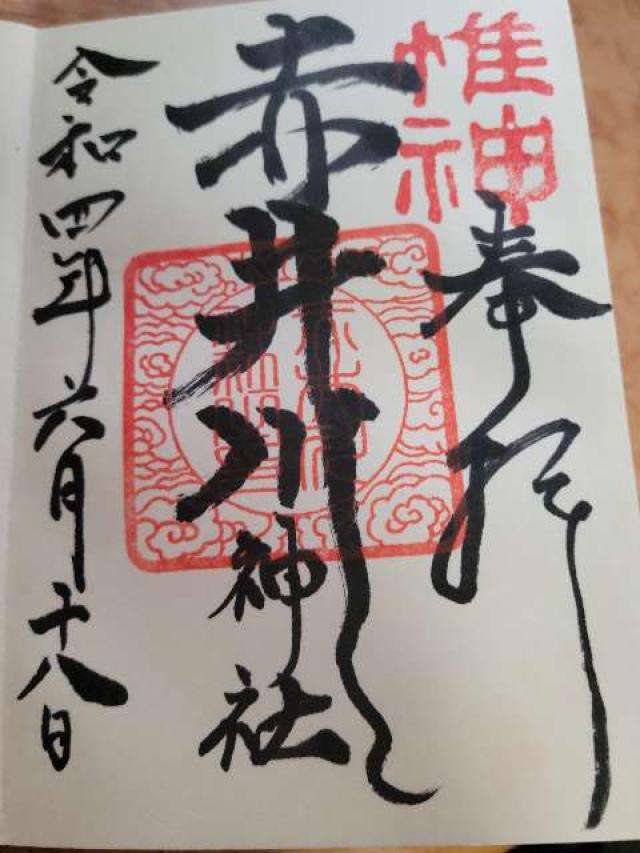 惟神
奉拝
赤井川神社
令和四年六月十八日